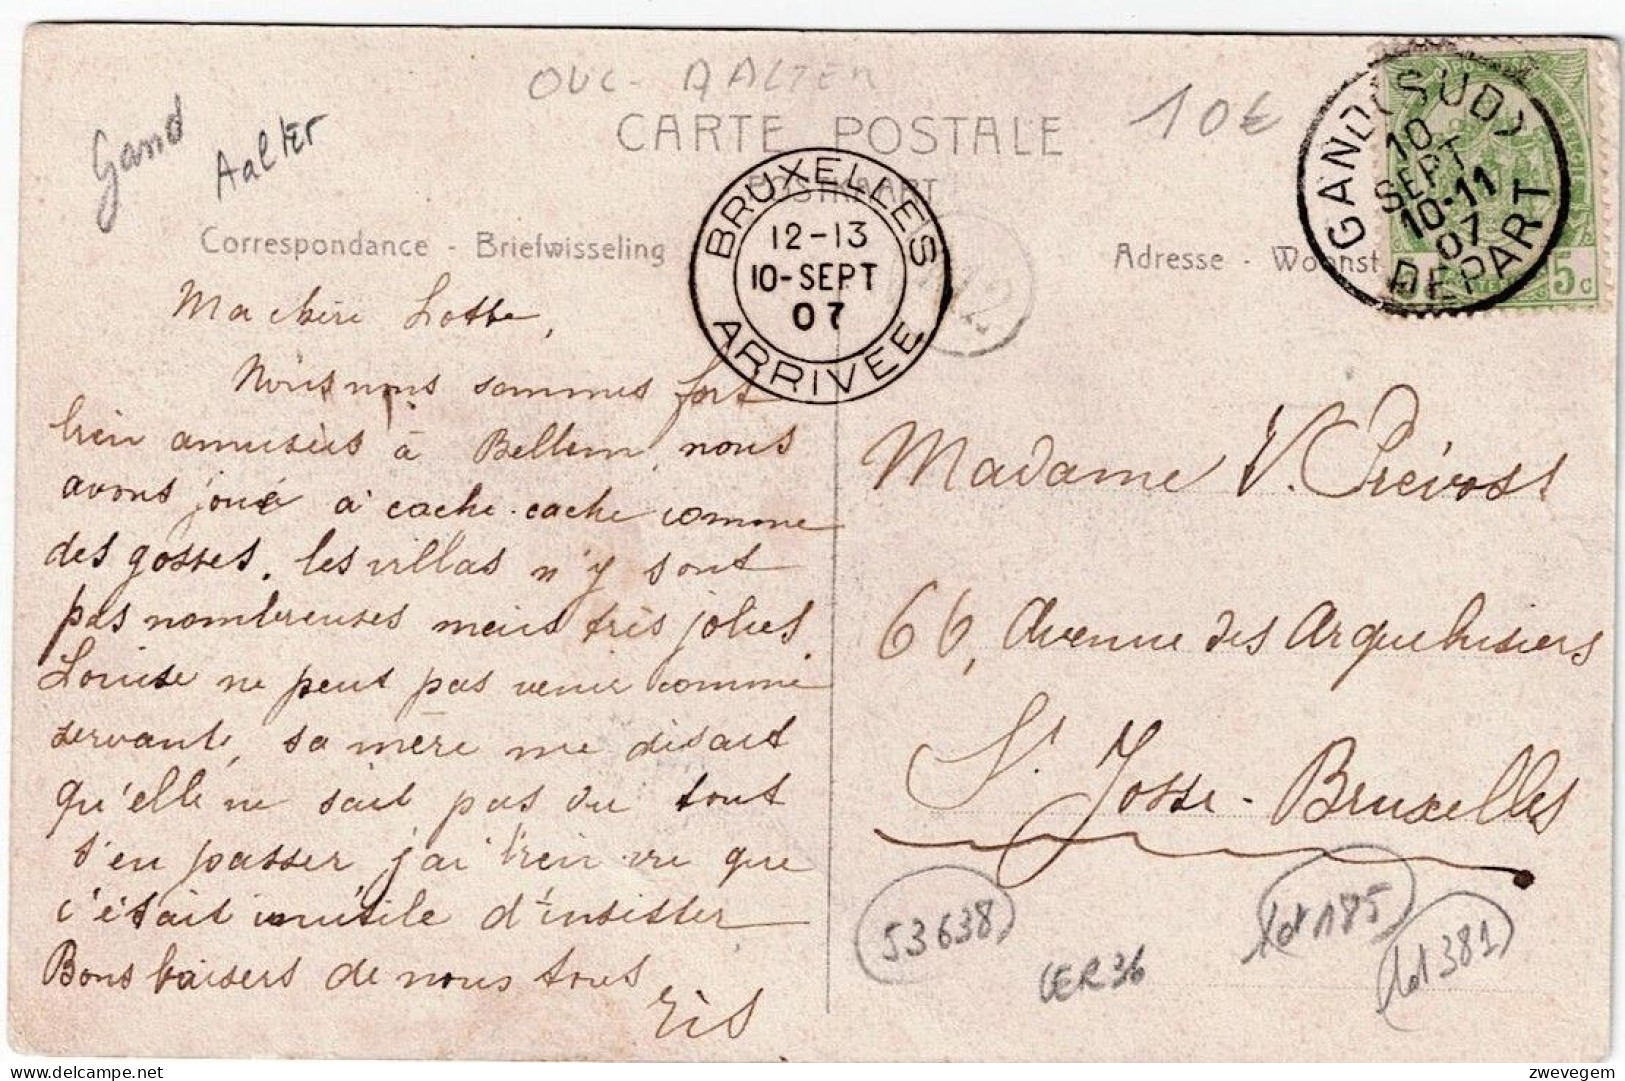 OUC - AALTER
10€
Gand
Aalter
CARTE POSTALE
POSTKAART
Correspondance - Briefwisseling
Adresse - Woonst
BRUXELLES
12-13
10-SEPT
07
ARRIVEE
GAND (SUD)
10
SEPT
10-11
07
DEPART
5c
Ma chère Lotte,
Nous nous sommes fort
bien amusées à Bellem, nous
avons joué à cache-cache comme
des gosses. Les villas n'y sont
pas nombreuses mais très jolies.
Louise ne peut pas venir comme
servante, sa mère me disait
qu'elle ne sait pas du tout
s'en passer, j'ai bien vu que
c'était inutile d'insister
Bons baisers de nous tous
Madame V. Prévost
66, Avenue des Arquebusiers
St Josse - Bruxelles
53638
CER36
lot 185
lot 381
delcampe.net
zwevegem